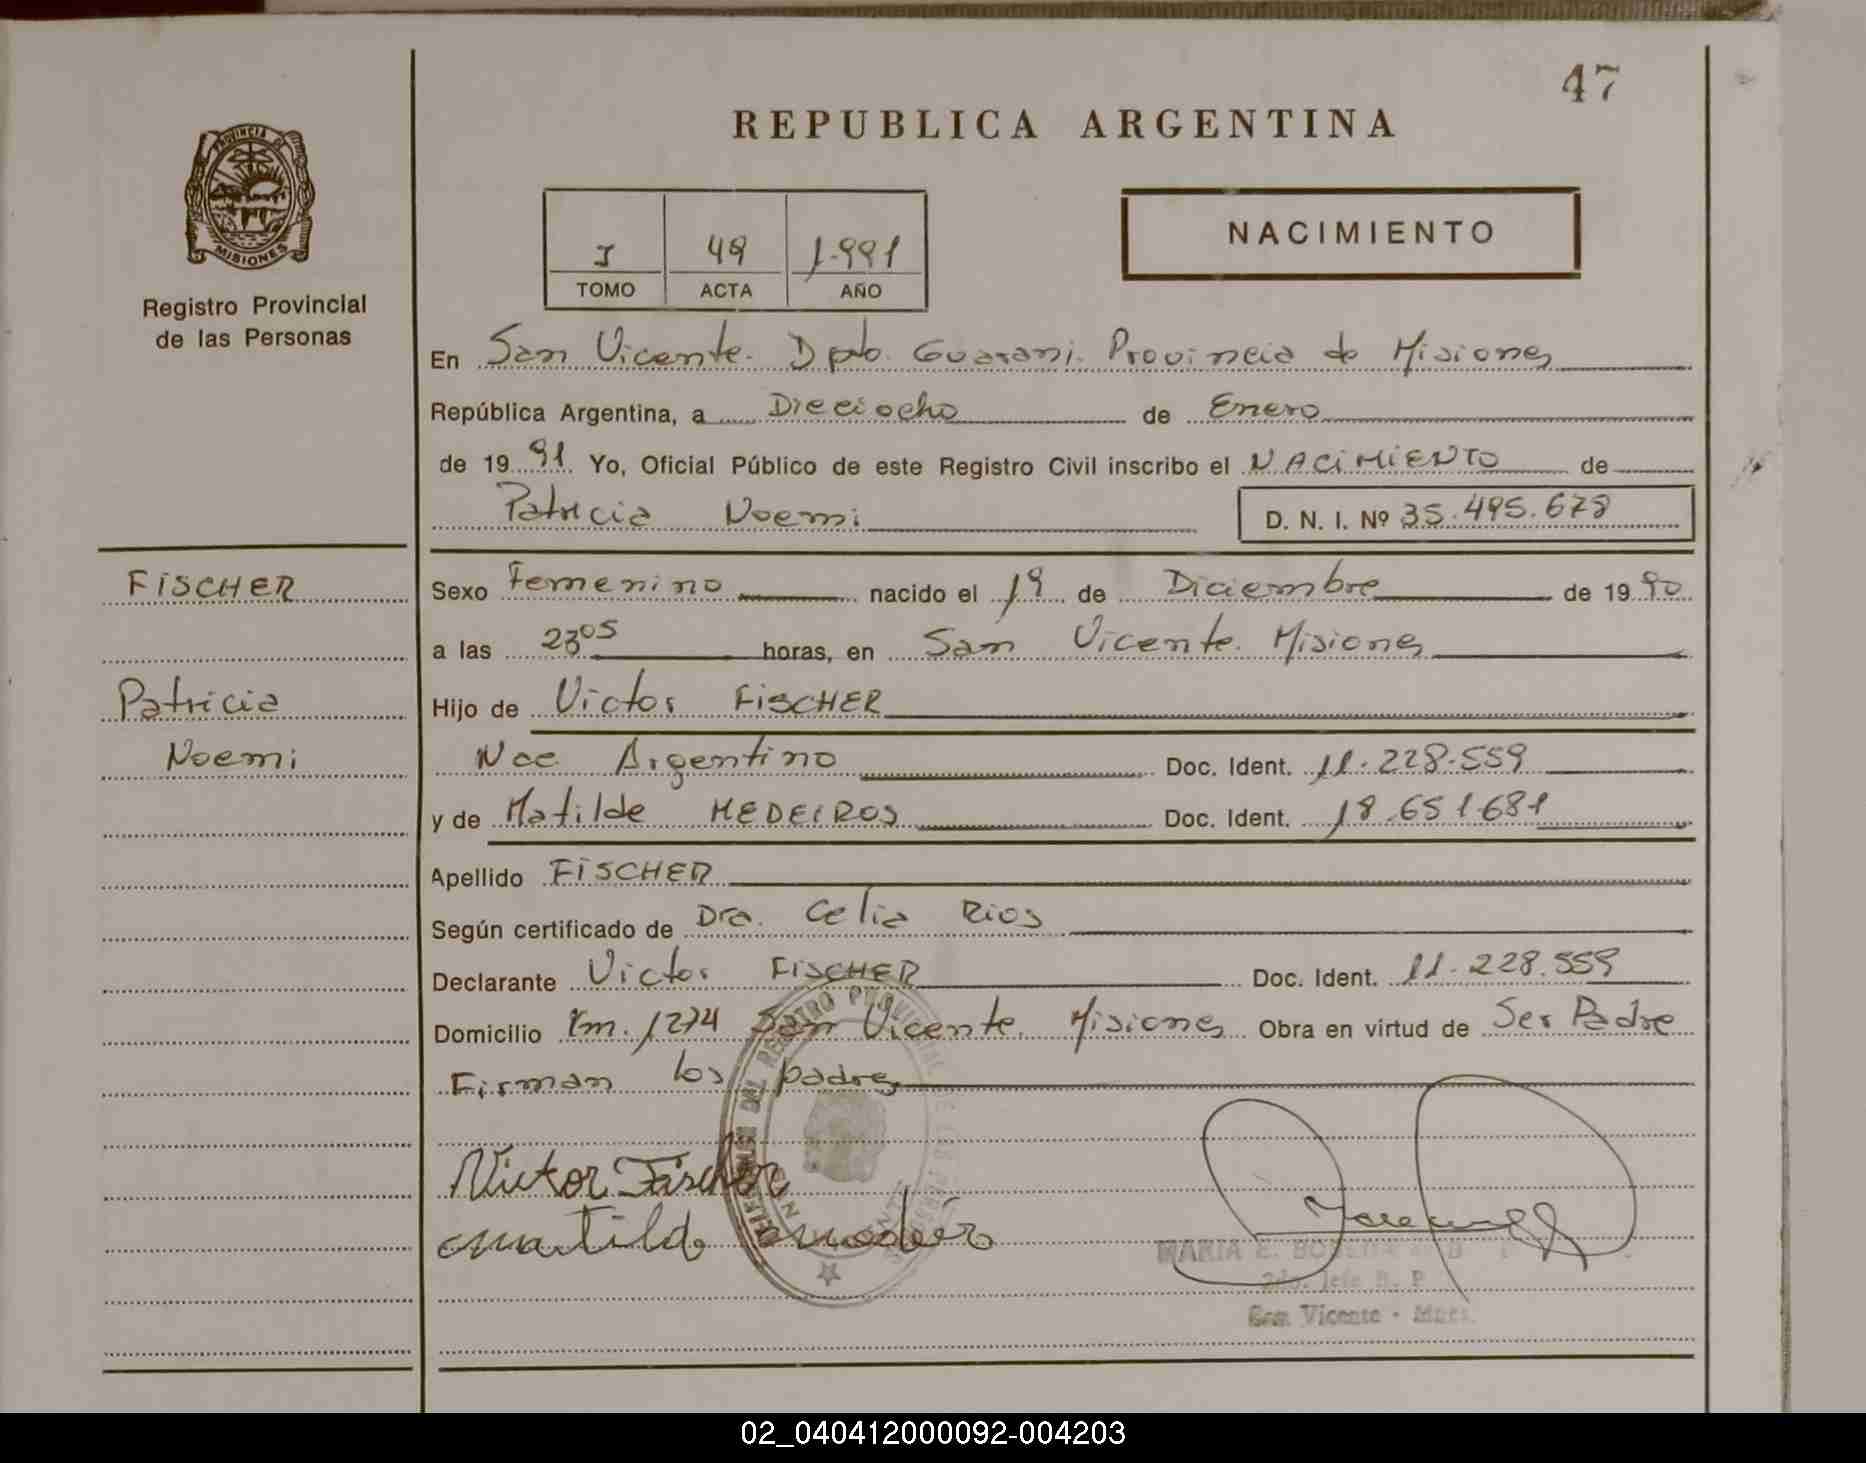 47
REPUBLICA ARGENTINA
PROVINCIA DE
MISIONES
Registro Provincial
de las Personas
I 49 1.991
TOMO ACTA AÑO
NACIMIENTO
En San Vicente. Dpto. Guarani. Provincia de Misiones
República Argentina, a Dieciocho de Enero
de 1991 Yo, Oficial Público de este Registro Civil inscribo el NACIMIENTO de
Patricia Noemi D. N. I. Nº 35.495.678
FISCHER
Patricia
Noemi
Sexo Femenino nacido el 19 de Diciembre de 1990
a las 23 05 horas, en San Vicente. Misiones
Hijo de Victor FISCHER
Nac. Argentino Doc. Ident. 11.228.559
y de Matilde MEDEIROS Doc. Ident. 18.651.681
Apellido FISCHER
Según certificado de Dra. Celia Rios
Declarante Victor FISCHER Doc. Ident. 11.228.559
Domicilio Km. 1274 San Vicente. Misiones Obra en virtud de Ser Padre
Firman los padres
Victor Fischer
Matilde
MARIA E.
2do. Jefe R. P.
San Vicente - Mnes.
02_040412000092-004203